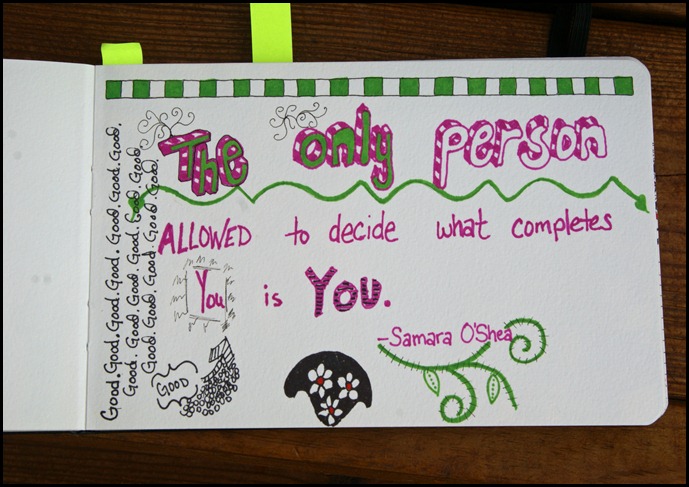 The only person
ALLOWED to decide what completes
You is YOU.
-Samara O'Shea
Good.Good.Good.Good.Good.Good.Good.Good.
Good.Good.Good.Good.Good.Good.Good.
Good.Good.Good.Good.Good.Good.
GOOD